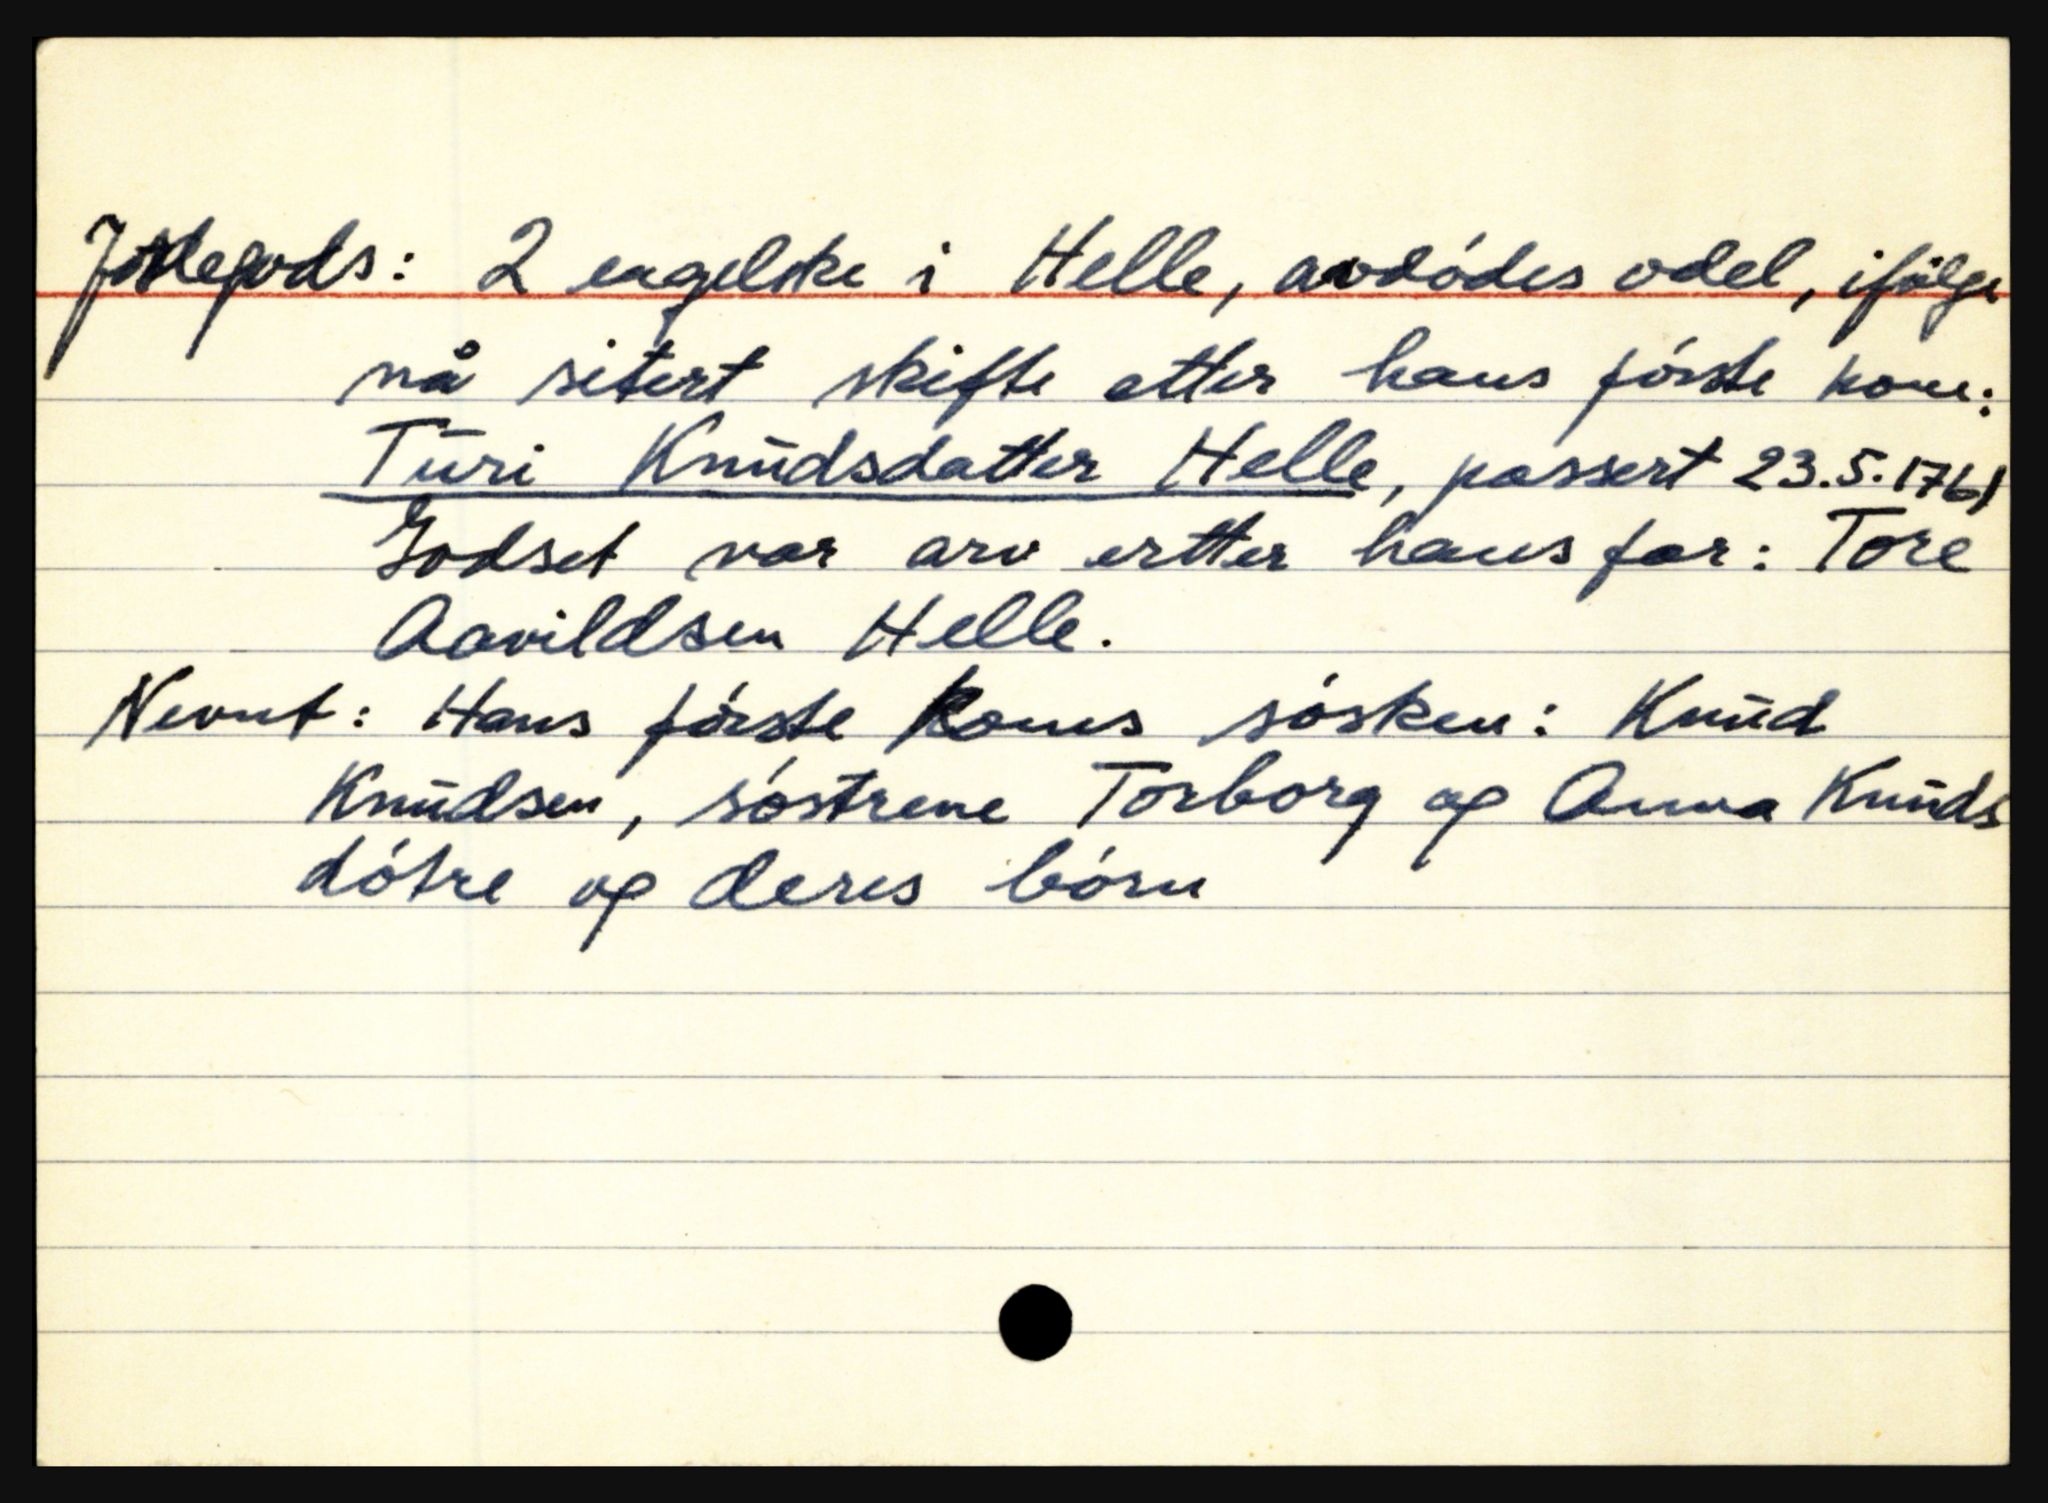 Jordegods: 2 engelske i Helle, avdódes odel, ifólge
nå sitert skifte etter hans fórste kone:
Turi Knudsdatter Helle, passert 23.5.1761
Godset var arv ertter hans far: Tore
Aavildsen Helle.
Nevnt: Hans fórste kones sósken: Knud
Knudsen, sóstrene Torborg og Anna Knuds
dótre og deres bórn